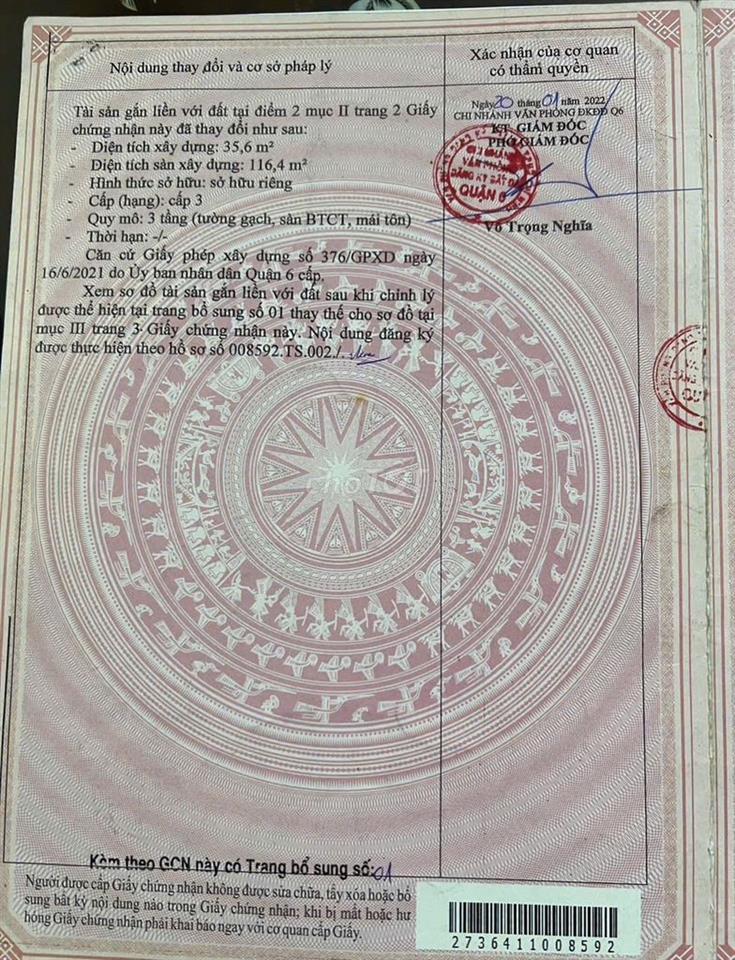 Nội dung thay đổi và cơ sở pháp lý
Xác nhận của cơ quan
có thẩm quyền
Tài sản gắn liền với đất tại điểm 2 mục II trang 2 Giấy
chứng nhận này đã thay đổi như sau:
- Diện tích xây dựng: 35,6 m²
- Diện tích sàn xây dựng: 116,4 m²
- Hình thức sở hữu: sở hữu riêng
- Cấp (hạng): cấp 3
- Quy mô: 3 tầng (tường gạch, sàn BTCT, mái tôn)
- Thời hạn: -/-
Căn cứ Giấy phép xây dựng số 376/GPXD ngày
16/6/2021 do Ủy ban nhân dân Quận 6 cấp.
Xem sơ đồ tài sản gắn liền với đất sau khi chỉnh lý
được thể hiện tại trang bổ sung số 01 thay thế cho sơ đồ tại
mục III trang 3 Giấy chứng nhận này. Nội dung đăng ký
được thực hiện theo hồ sơ số 008592.TS.002./.
Ngày 20 tháng 01 năm 2022
CHI NHÁNH VĂN PHÒNG ĐKĐĐ Q6
KT. GIÁM ĐỐC
PHÓ GIÁM ĐỐC
CHI NHÁNH
VĂN PHÒNG
ĐĂNG KÝ ĐẤT ĐAI
QUẬN 6
Võ Trọng Nghĩa
Kèm theo GCN này có Trang bổ sung số: 01
Người được cấp Giấy chứng nhận không được sửa chữa, tẩy xóa hoặc bổ
sung bất kỳ nội dung nào trong Giấy chứng nhận; khi bị mất hoặc hư
hỏng Giấy chứng nhận phải khai báo ngay với cơ quan cấp Giấy.
2736411008592